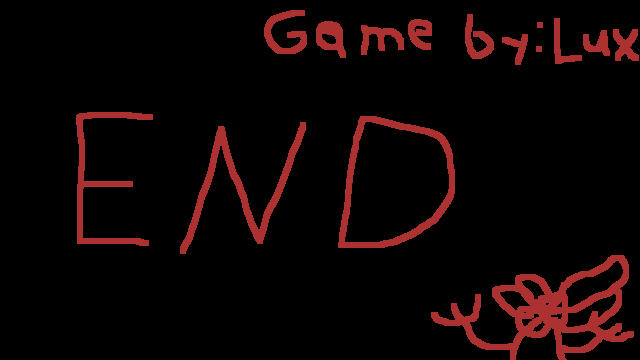 Game by:Lux
END